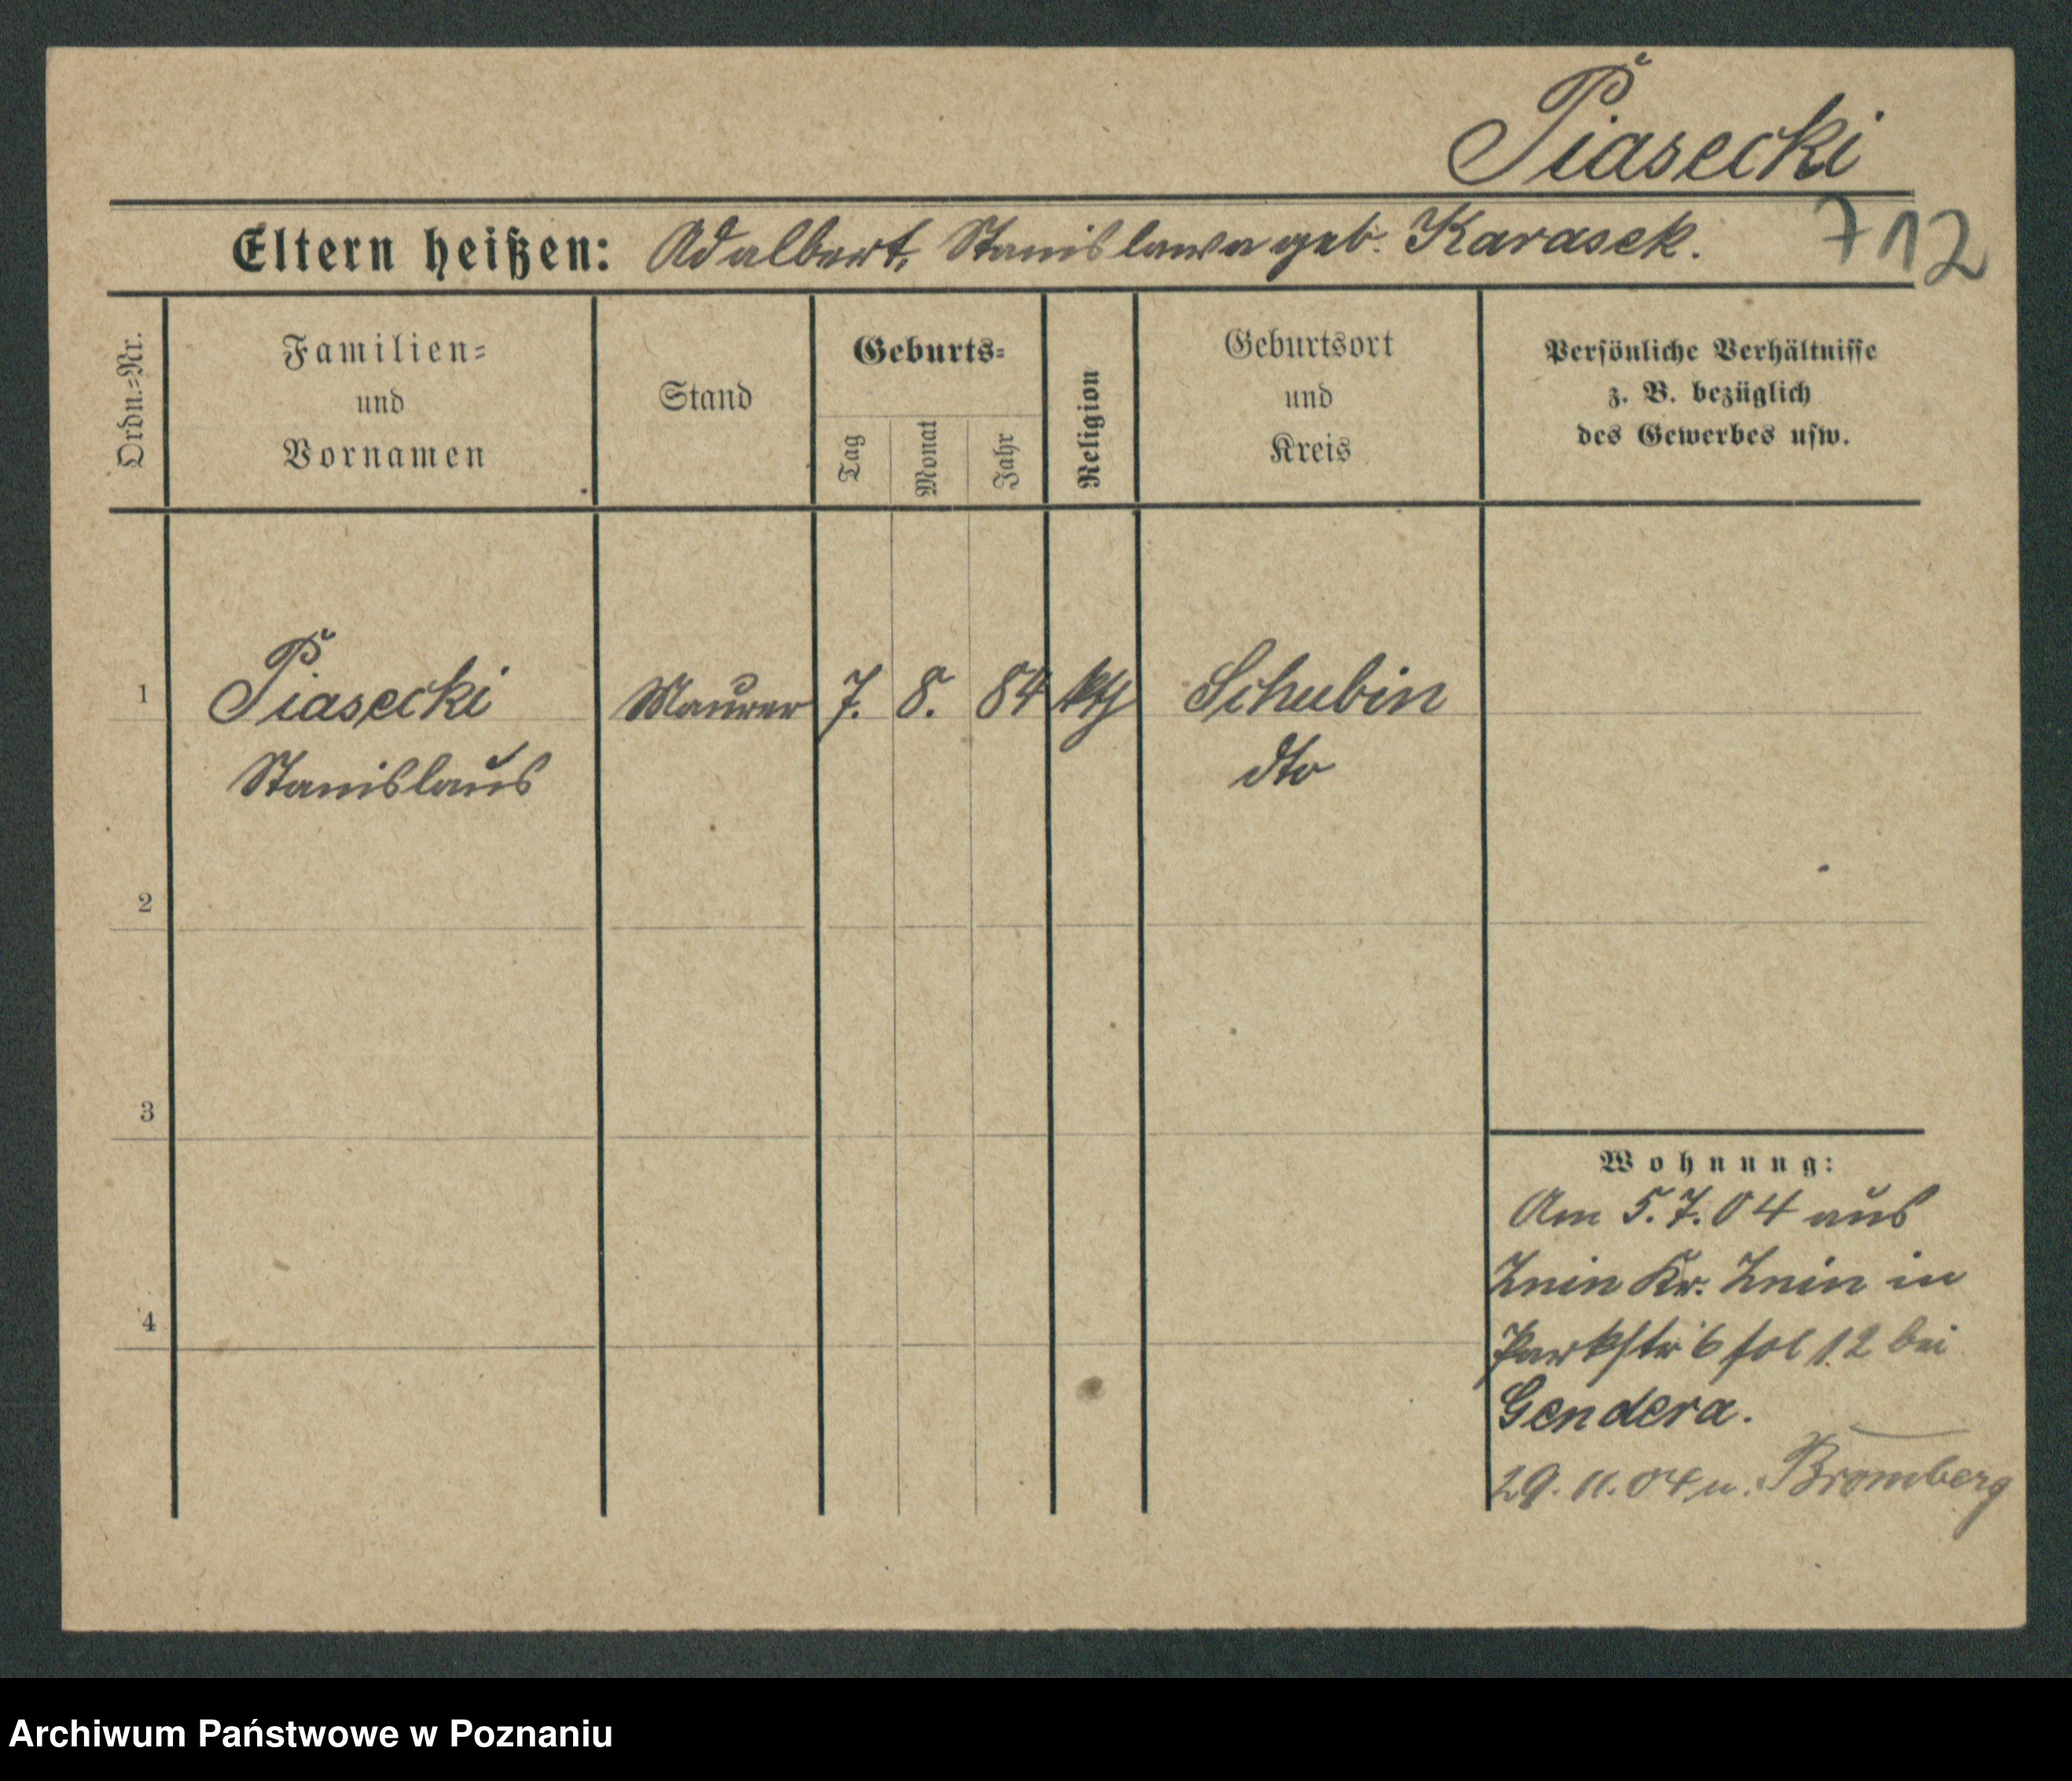 Piasecki
712
Eltern heißen: Adalbert, Stanislawa geb. Karasek.
Ordn.-Nr.
Familien-
und
Vornamen
Stand
Geburts-
Tag
Monat
Jahr
Religion
Geburtsort
und
Kreis
Persönliche Verhältnisse
z. B. bezüglich
des Gewerbes usw.
1 Piasecki Maurer 7. 8. 84 kth Schubin
Stanislaus dto
2
3
4
Wohnung:
Am 5.7.04 aus
Znin Kr. Znin in
Parkstr 6 fol 12 bei
Gendera.
29.11.04 n. Bromberg
Archiwum Państwowe w Poznaniu